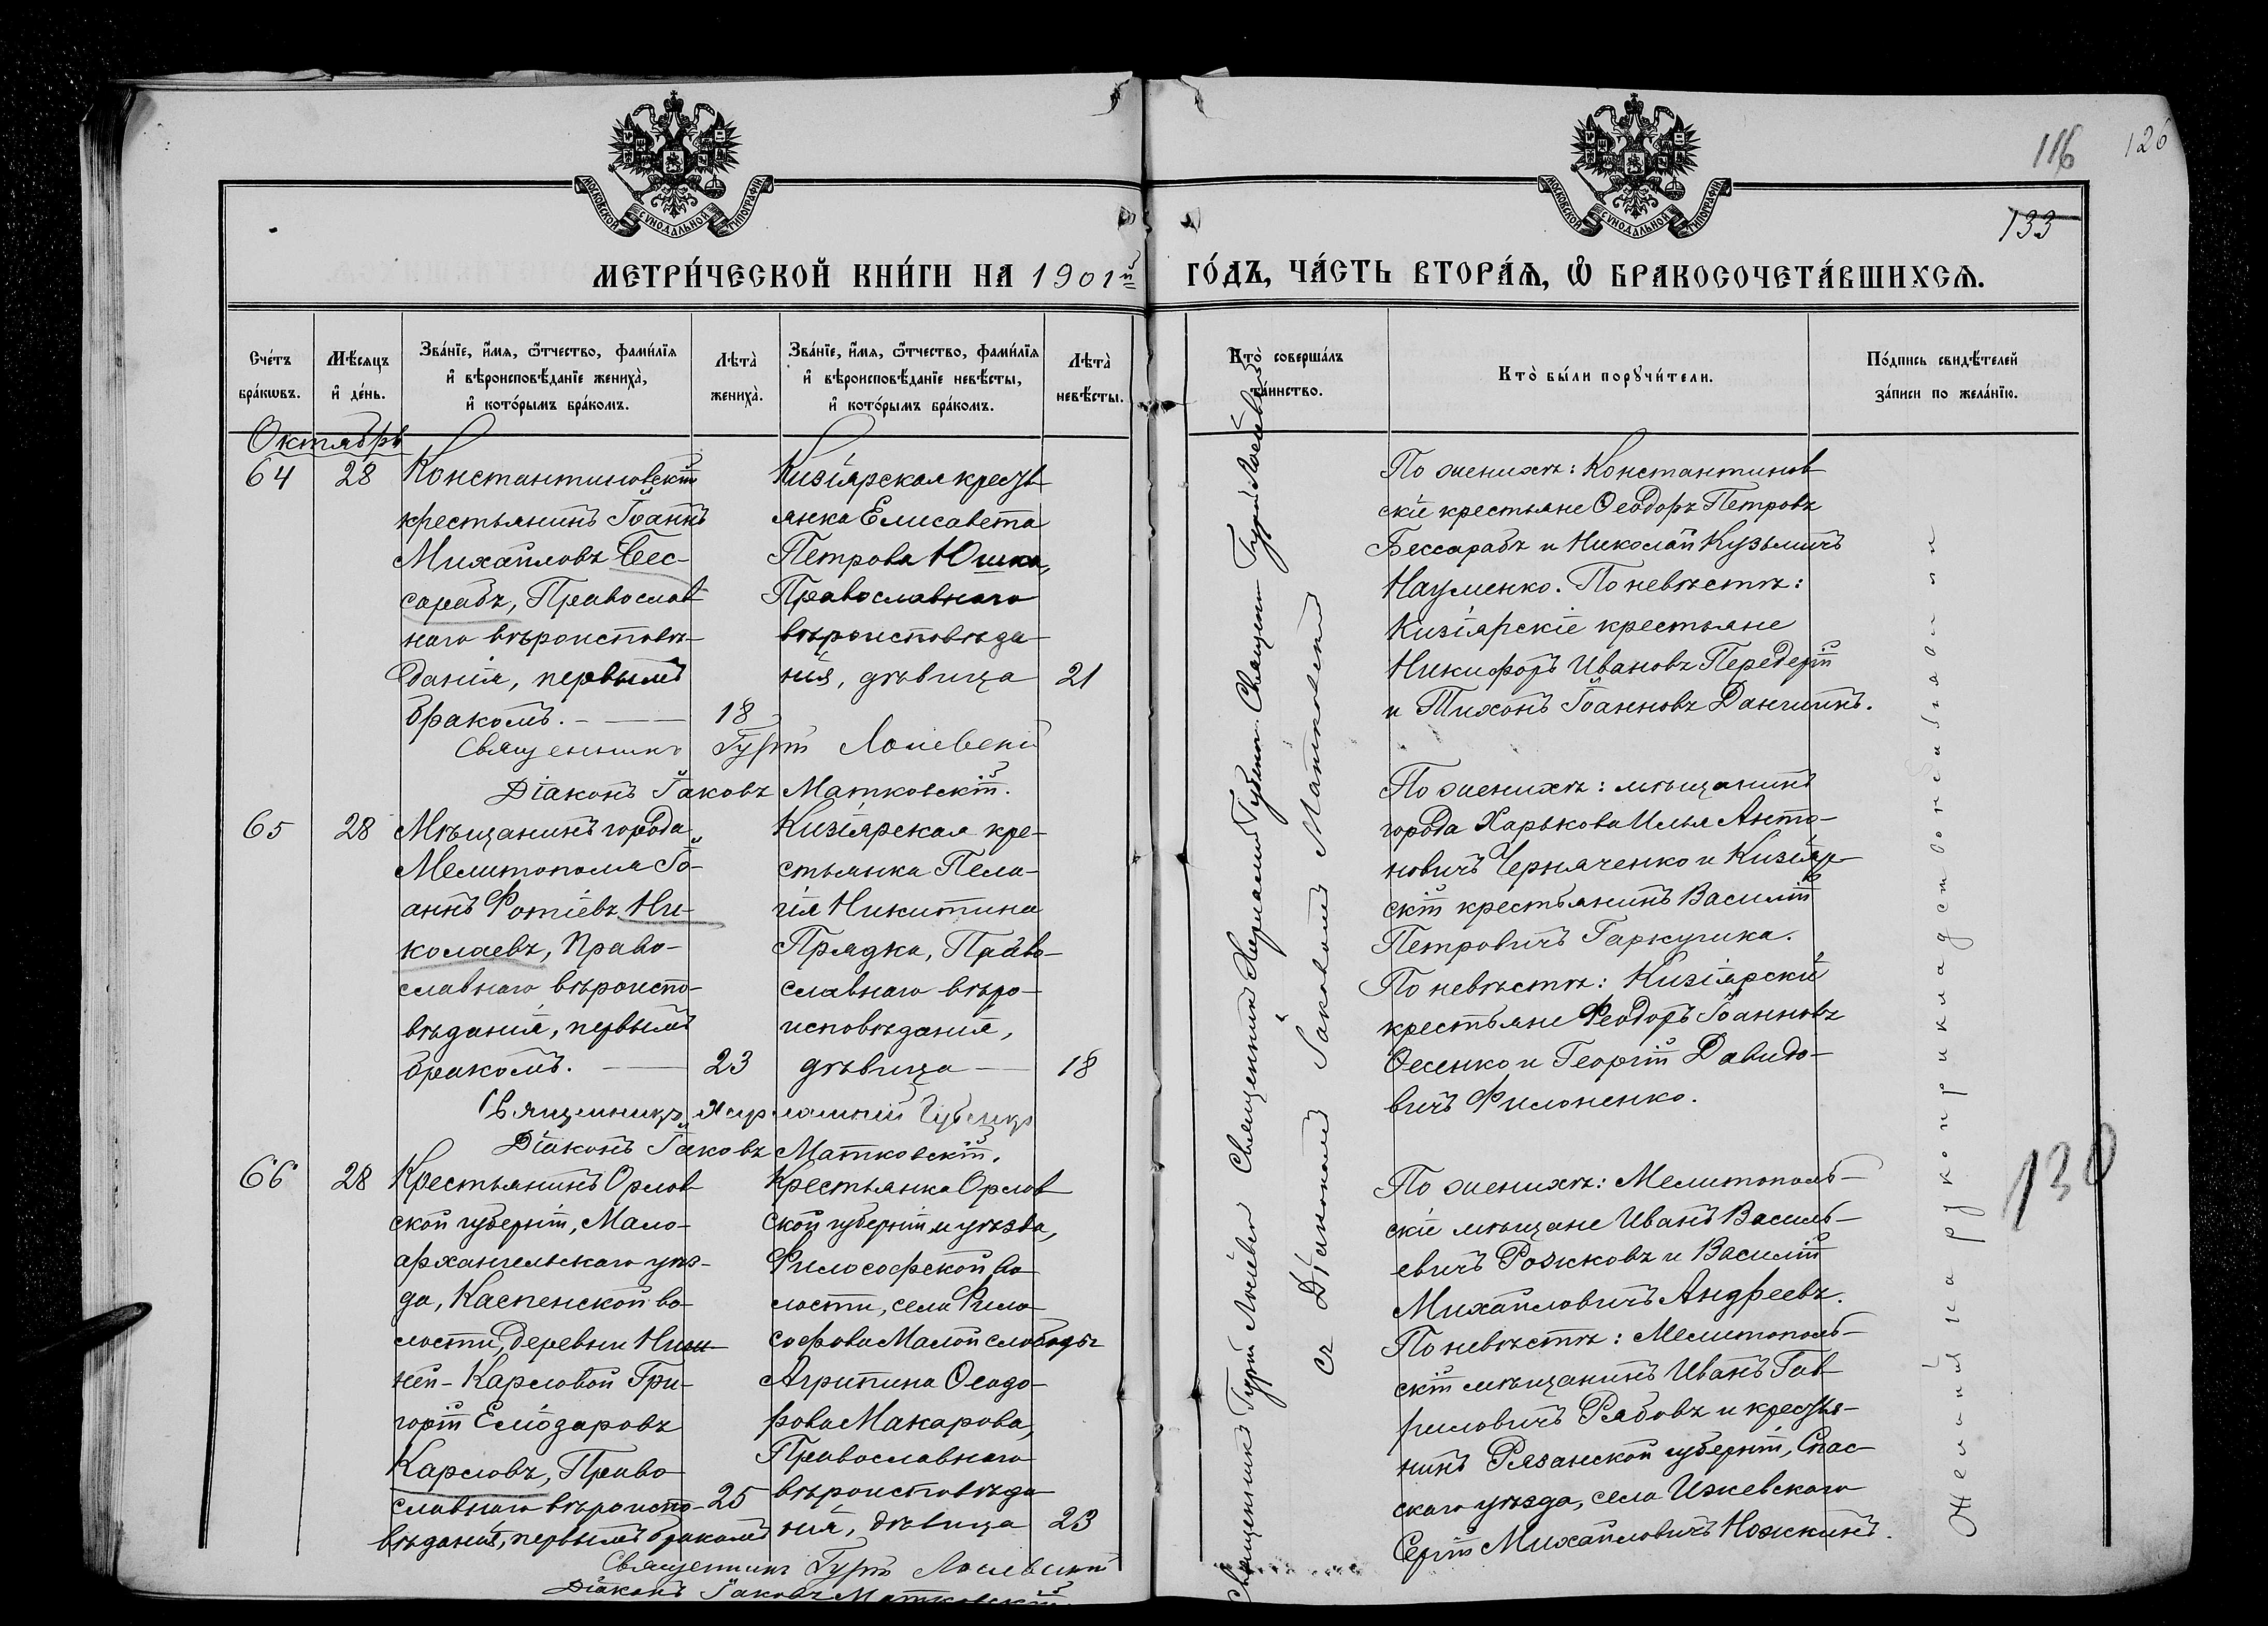 МОСКОВСКОЙ СѴНОДАЛЬНОЙ ТИПОГРАФІИ
МОСКОВСКОЙ СѴНОДАЛЬНОЙ ТИПОГРАФІИ
116
126
133
МЕТРИ́ЧЕСКОЙ КНИ́ГИ НА 1901й
ГО́ДЪ, ЧА́СТЬ ВТОРА́Ѧ, Ѽ БРАКОСОЧЕТА́ВШИХСѦ.
Сче́тъ
бра́кѡвъ.
Мѣ́сяцъ
и҆ де́нь.
Зва́нїе, и҆́мѧ, ѻ҆́тчество, фами́лїѧ
и҆ вѣроисповѣ́данїе жениха̀,
и҆ кото́рымъ бра́комъ.
Лѣта̀
жениха̀.
Зва́нїе, и҆́мѧ, ѻ҆́тчество, фами́лїѧ
и҆ вѣроисповѣ́данїе невѣ́сты,
и҆ кото́рымъ бра́комъ.
Лѣта̀
невѣ́сты.
Кто̀ соверша́лъ
та́инство.
Кто̀ бы́ли порꙋчи́тели.
По́дпись свидѣ́телей
за́писи по жела́нїю.
Октябрь
64
28
Константиновскій
крестьянинъ Іоаннъ
Михайловъ Бес-
сарабъ, Православ-
наго вѣроисповѣ-
данія, первымъ
бракомъ.
18
Кизіярская кресть-
янка Елисавета
Петрова Юшко,
Православнаго
вѣроисповѣда-
нія, дѣвица
21
Священникъ Гурій Лосіевскій
Діаконъ Іаковъ Матковскій.
По женихѣ: Константинов-
скіе крестьяне Ѳеодоръ Петровъ
Бессарабъ и Николай Кузьмичъ
Науменко. По невѣстѣ:
Кизіярскіе крестьяне
Никифоръ Ивановъ Передерій
и Тихонъ Іоанновъ Данчишинъ.
65
28
Мѣщанинъ города
Мелитополя Іо-
аннъ Фотіевъ Ни-
колаевъ, Право-
славнаго вѣроиспо-
вѣданія, первымъ
бракомъ.
23
Кизіярская кре-
стьянка Пела-
гія Никитина
Прядка, Право-
славнаго вѣро-
исповѣданія,
дѣвица
18
Священникъ Харлампій Губскій
Діаконъ Іаковъ Матковскій.
По женихѣ: мѣщанинъ
города Харькова Илья Анто-
новичъ Черняченко и Кизіяр-
скій крестьянинъ Василій
Петровичъ Гаркушка.
По невѣстѣ: Кизіярскіе
крестьяне Феодоръ Іоанновъ
Ѳесенко и Георгій Давидо-
вичъ Филоненко.
66
28
Крестьянинъ Орлов-
ской губерніи, Мало-
архангельскаго уѣз-
да, Каспенской во-
лости, деревни Ниж-
ней-Карловой Гри-
горій Еліозаровъ
Карловъ, Право-
славнаго вѣроиспо-
вѣданія, первымъ бракомъ
25
Крестьянка Орлов-
ской губерніи и уѣзда,
Философской во-
лости, села Фило-
софова Малой слободы
Агрипина Ѳеодо-
рова Макарова,
Православнаго
вѣроисповѣда-
нія, дѣвица
23
Священникъ Гурій Лосіевскій
Діаконъ Іаковъ Матковскій
По женихѣ: Мелитополь-
скіе мѣщане Иванъ Василь-
евичъ Рожковъ и Василій
Михайловичъ Андреевъ.
По невѣстѣ: Мелитополь-
скій мѣщанинъ Иванъ Гав-
риловичъ Рябовъ и кресть-
нинъ Рязанской губерніи, Спас-
скаго уѣзда, села Ижевскаго
Сергій Михайловичъ Ножкинъ.
съ Діакономъ Іаковомъ Матковскимъ
130